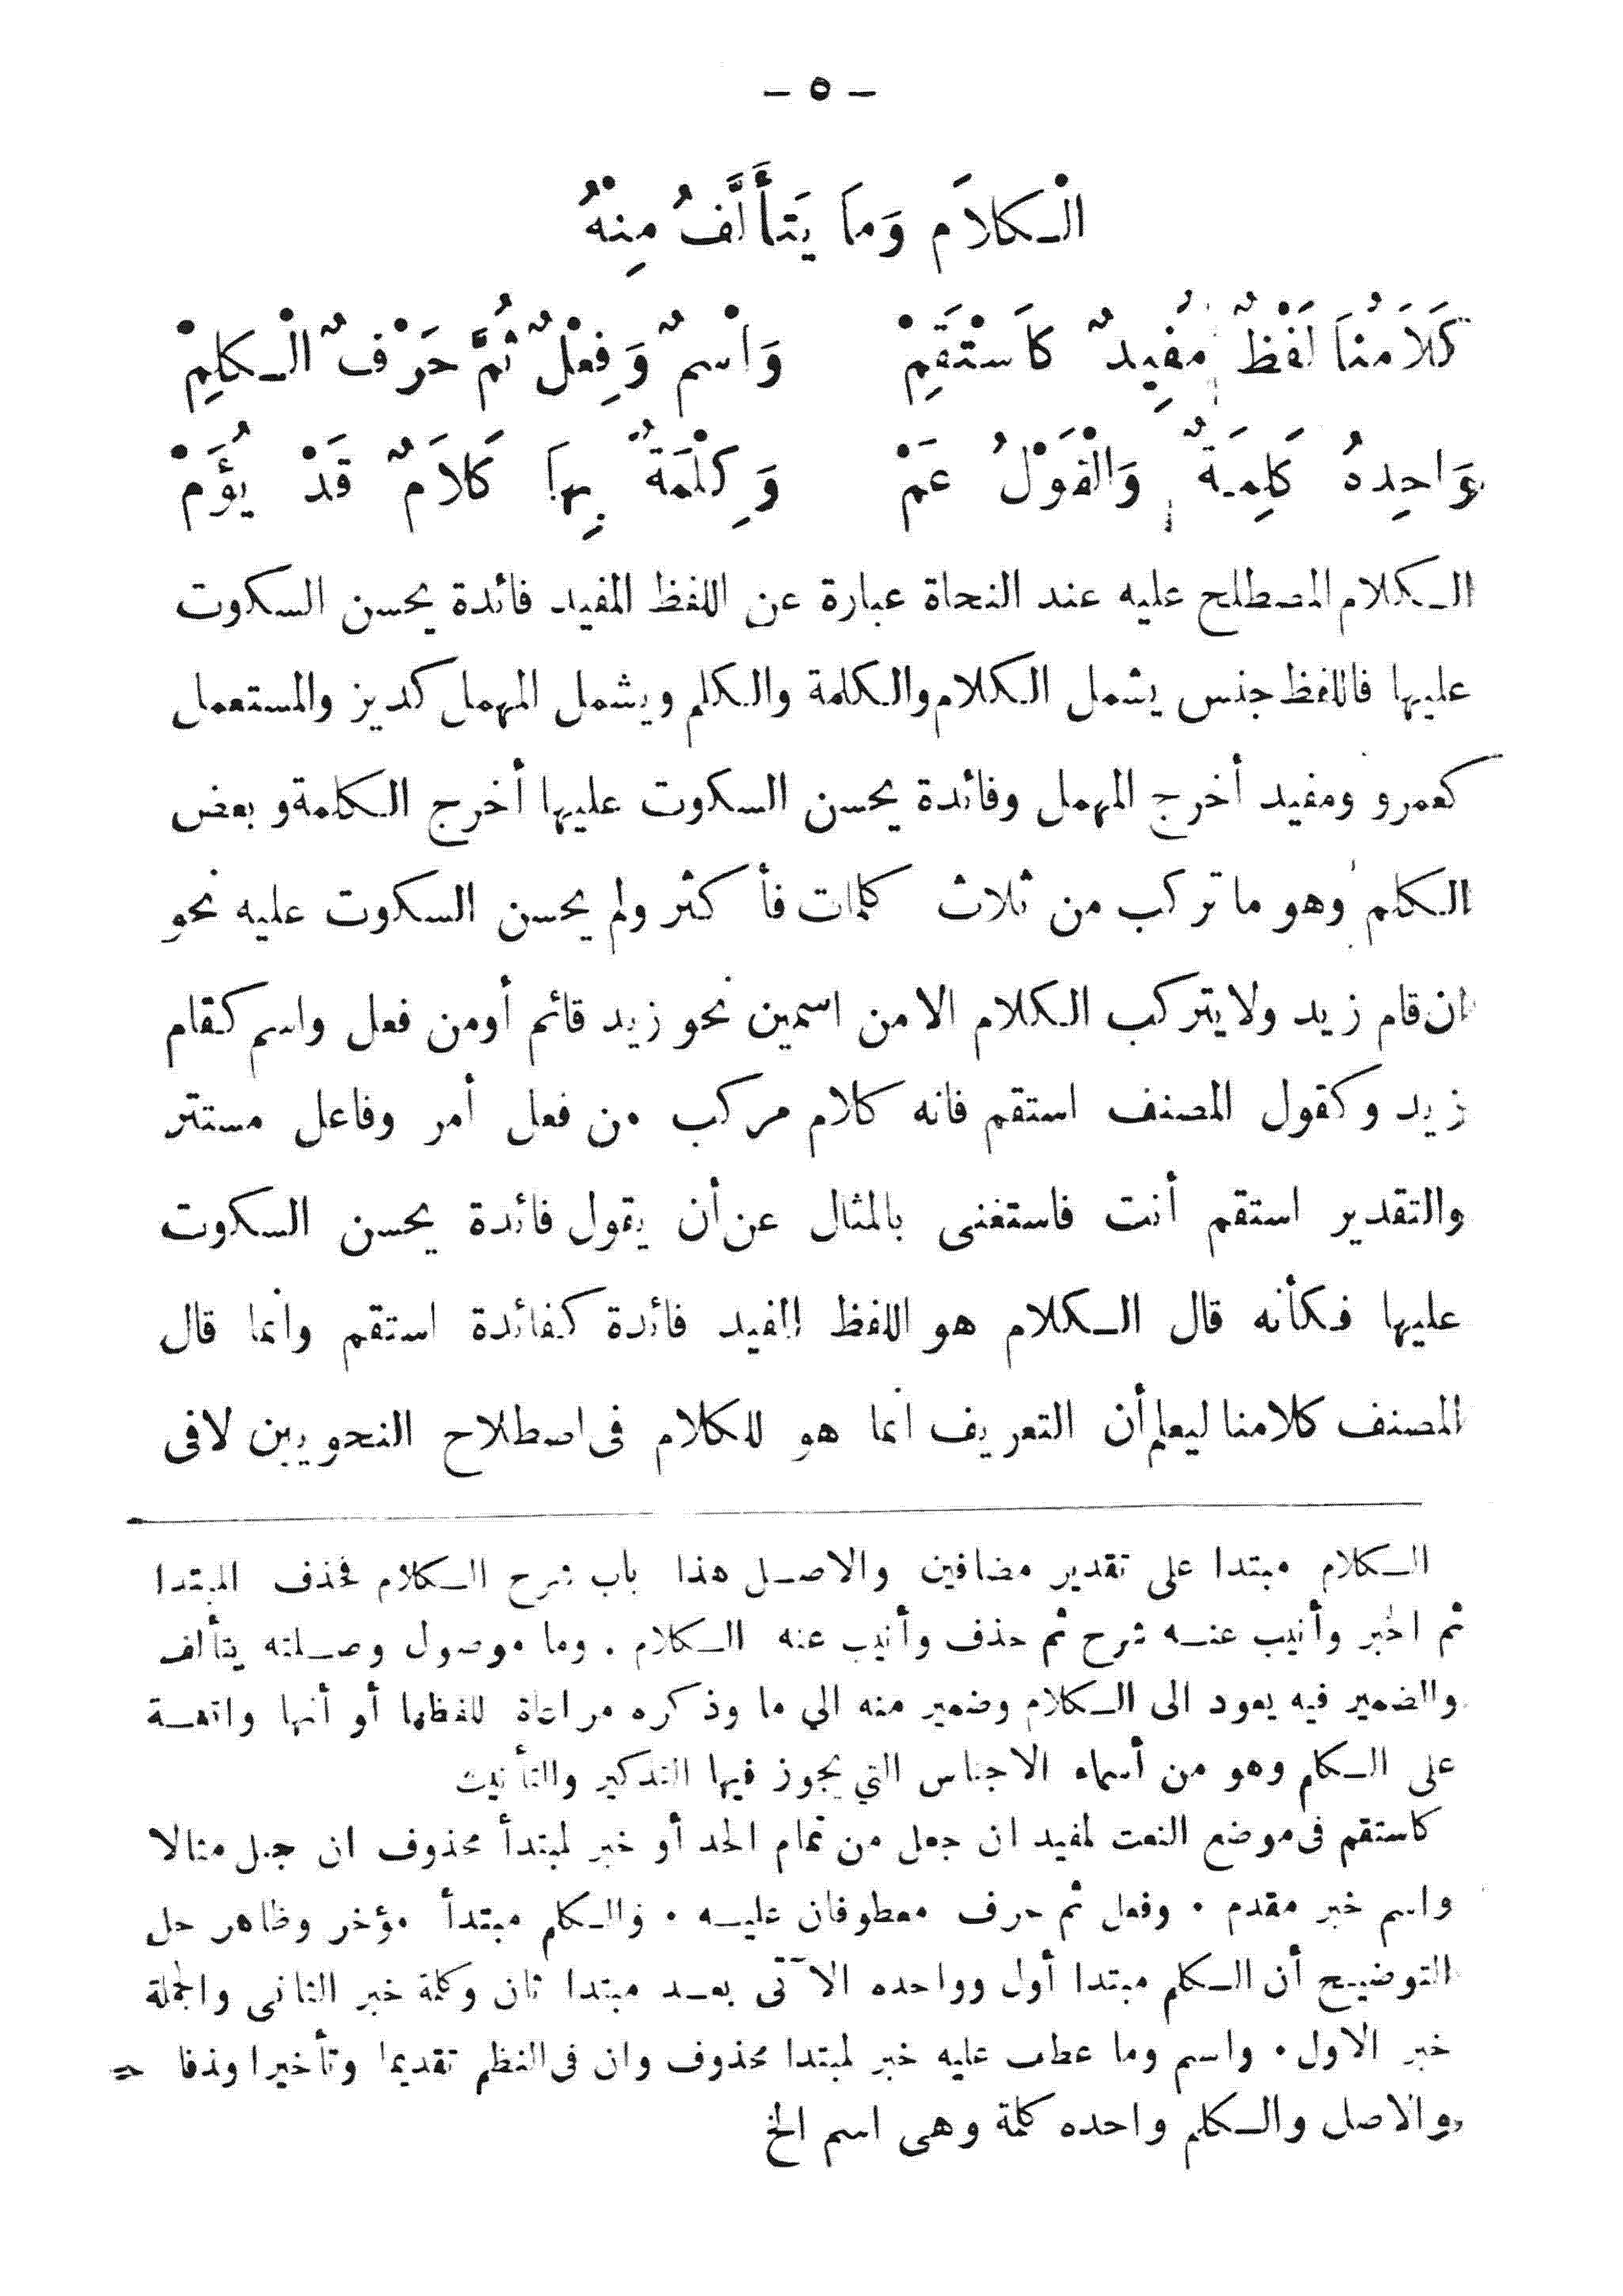 – ٥ –
الْكَلاَمُ وَمَا يَتَأَلَّفُ مِنْهُ
كَلاَمُنَا لَفْظٌ مُفِيدٌ كَاسْتَقِمْ وَاسْمٌ وَفِعْلٌ ثُمَّ حَرْفٌ الْكَلِمْ
وَاحِدُهُ كَلِمَةٌ وَالْقَوْلُ عَمْ وَكِلْمَةٌ بِهَا كَلاَمٌ قَدْ يُؤَمْ
الكلام المصطلح عليه عند النحاة عبارة عن اللفظ المفيد فائدة يحسن السكوت
عليها فاللفظ جنس يشمل الكلام والكلمة والكلم ويشمل المهمل كديز والمستعمل
كعمرو ومفيد أخرج المهمل وفائدة يحسن السكوت عليها أخرج الكلمة وبعض
الكلم وهو ما تركب من ثلاث كلمات فأكثر ولم يحسن السكوت عليه نحو
ان قام زيد ولا يتركب الكلام الا من اسمين نحو زيد قائم أو من فعل واسم كقام
زيد وكقول المصنف استقم فانه كلام مركب من فعل أمر وفاعل مستتر
والتقدير استقم أنت فاستغنى بالمثال عن أن يقول فائدة يحسن السكوت
عليها فكأنه قال الكلام هو اللفظ المفيد فائدة كفائدة استقم وانما قال
المصنف كلامنا ليعلم أن التعريف انما هو للكلام فى اصطلاح النحويين لا فى
الكلام مبتدا على تقدير مضافين والاصل هذا باب شرح الكلام فحذف المبتدا
ثم الخبر وأنيب عنه شرح ثم حذف وأنيب عنه الكلام . وما موصول وصلته يتألف
والضمير فيه يعود الى الكلام وضمير منه الي ما وذكره مراعاة للفظها أو أنها واقعة
على الكلم وهو من أسماء الاجناس التي يجوز فيها التذكير والتأنيث
كاستقم فى موضع النعت لمفيد ان جعل من تمام الحد أو خبر لمبتدأ محذوف ان جعل مثالا
واسم خبر مقدم . وفعل ثم حرف معطوفان عليه . والكلم مبتدأ مؤخر وظاهر حل
التوضيح أن الكلم مبتدا أول وواحده الآتى بعد مبتدا ثان وكلمة خبر الثانى والجملة
خبر الاول . واسم وما عطف عليه خبر لمبتدا محذوف وان فى النظم تقديما وتأخيرا وحذفا =
والاصل والكلم واحده كلمة وهى اسم الخ